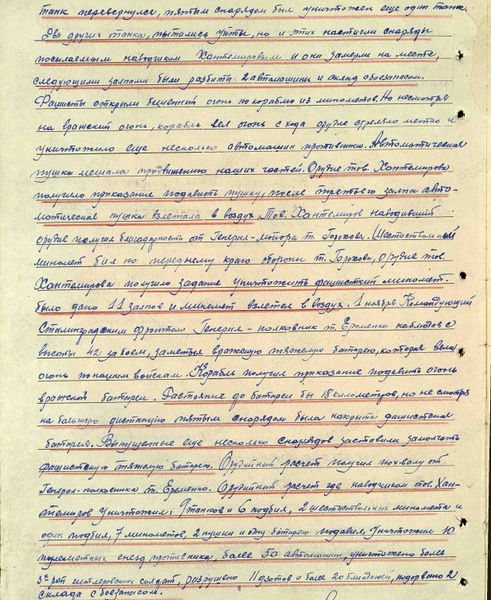 танк перевернулся, пятым снарядом был уничтожен еще один танк.
Два других танка, пытались уйти, но и этих настигли снаряды
посылаемым наводчиком Хантемировым и они замерли на месте,
следующими залпами были разбиты 2 автомашины и склад обоезапасом.
Фашисты открыли бешеный огонь по кораблю из минометов. Но несмотря
на вражский огонь, корабль вел огонь с хода орудие стреляло метко и
уничтожило еще несколько автомашин противника. Автоматическая
пушка мешала продвижению наших частей. Орудие тов. Хантемирова
получило приказание подавить пушку, после третьего залпа авто-
матическая пушка взлетела в воздух. Тов. Хантемиров наводивший
орудие получил благодарность от Генерал-майора т. Горохова. Шестиствольный
миномет бил по переднему краю обороны т. Горохова, орудие тов.
Хантемирова получило задание уничтожить фашистский миномет.
было дано 11 залпов и миномет взлетел в воздух. 1 ноября Командующий
Сталинградским фронтом Генерал-полковник т. Еременко наблюдая с
высоты 42 за боем, заметив вражскую тяжелую батарею, которая вела
огонь по нашим войскам. Корабль получил приказание подавить огонь
вражской батареи. Растояние до батареи бы 18 километров, но не смотря
на большую дистанцию пятым снарядом была накрыта фашистская
батарея. Выпущенные еще несколько снарядов заставили замолчать
фашистскую тяжелую батарею. Орудийный расчет получил похвалу от
Генерал-полковника т. Еременко. Орудийный расчет где наводчиком тов. Хан-
темиров уничтожил: 9 танков и 6 подбил, 2 шестиствольных миномета и
один подбил, 7 минометов, 2 пушки и одну батарею подавил. Уничтожил 10
пулеметных гнезд противника, более 50 автомашин, уничтожено более
3х рот гитлеровских солдат, разрушено 11 дзотов и более 20 блиндажей, подорвано 2
склада с боезапасом.